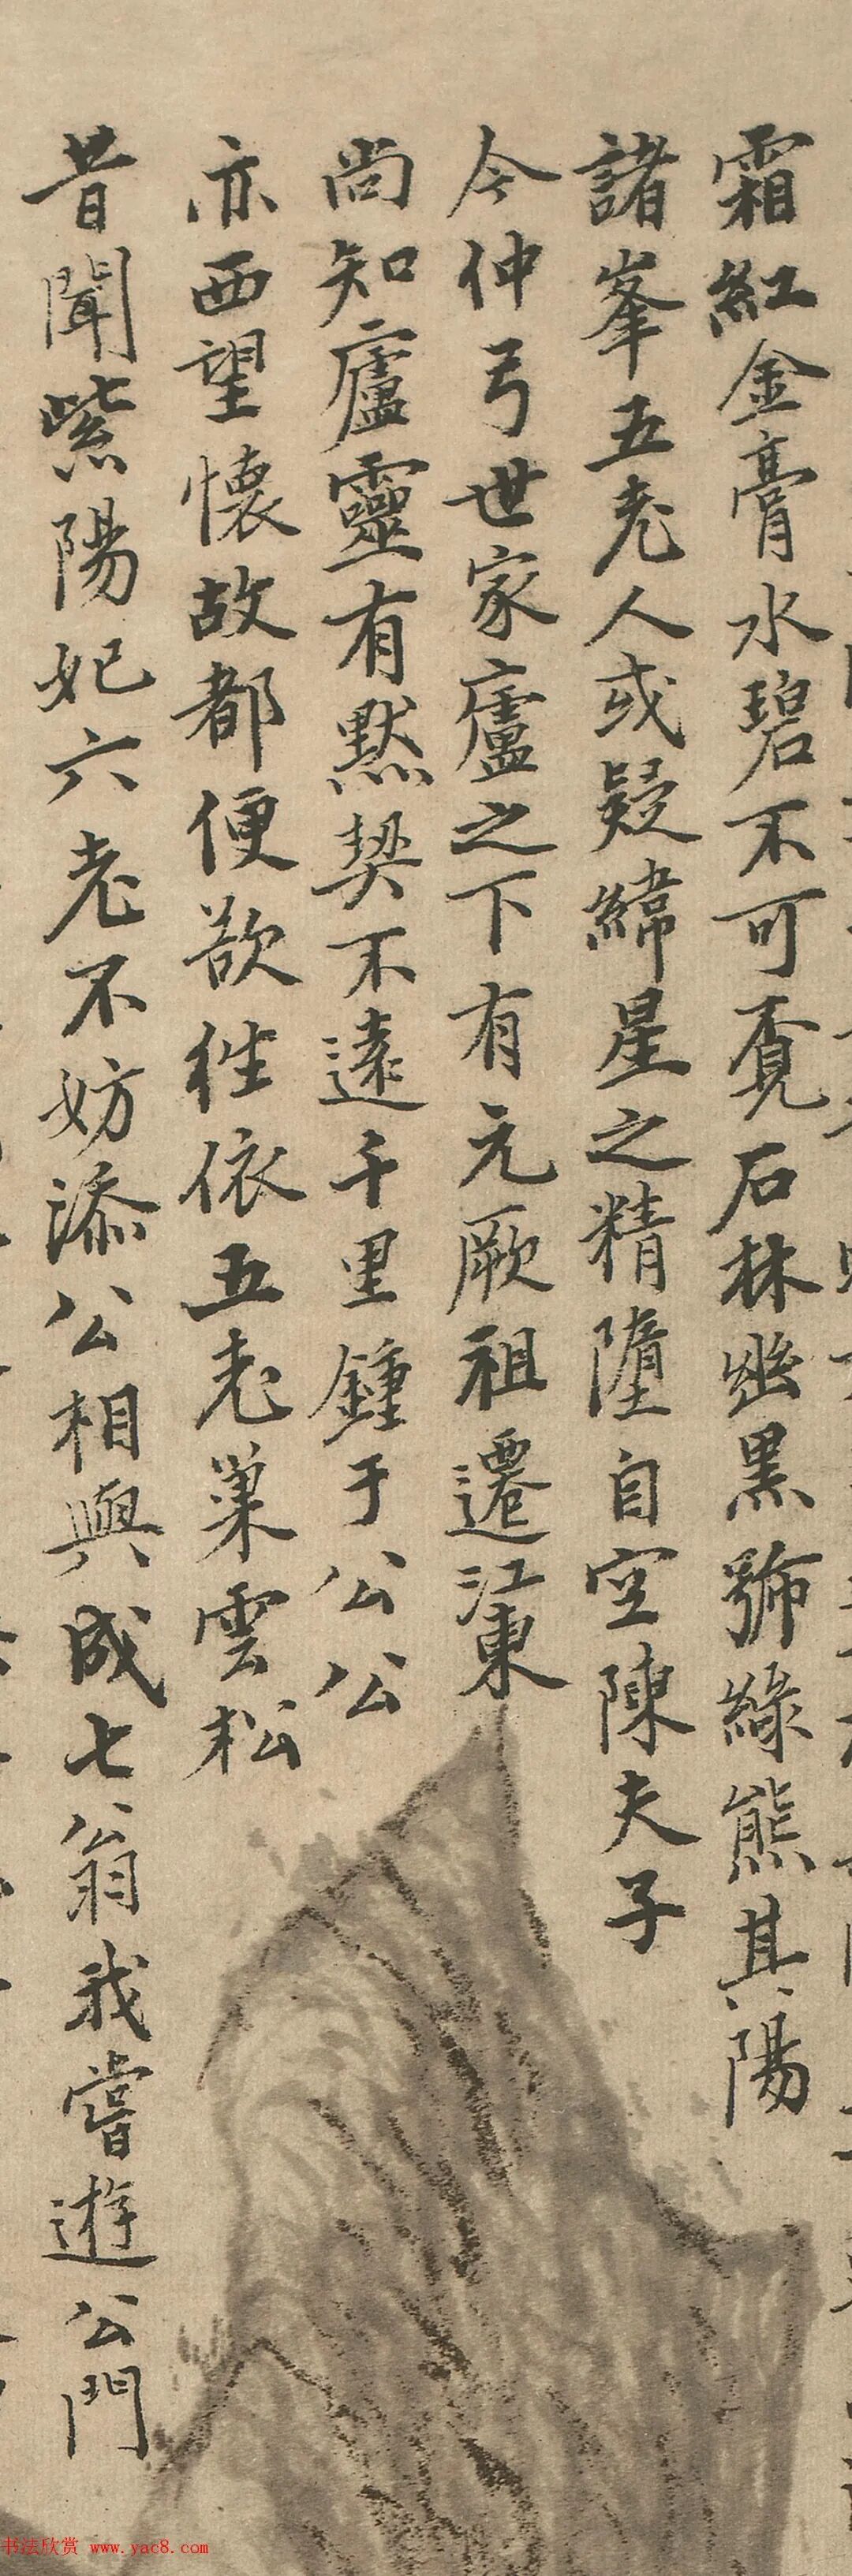 霜紅金膏水碧不可覔石林幽黑號綠熊其陽
諸峯五老人或疑緯星之精墮自空陳夫子
今仲弓世家廬之下有元厥祖遷江東
尚知廬靈有默契不遠千里鍾于公公
亦西望懷故都便欲往依五老巢雲松
昔聞紫陽妃六老不妨添公相與成七翁我嘗遊公門
书法欣赏 www.yac8.com